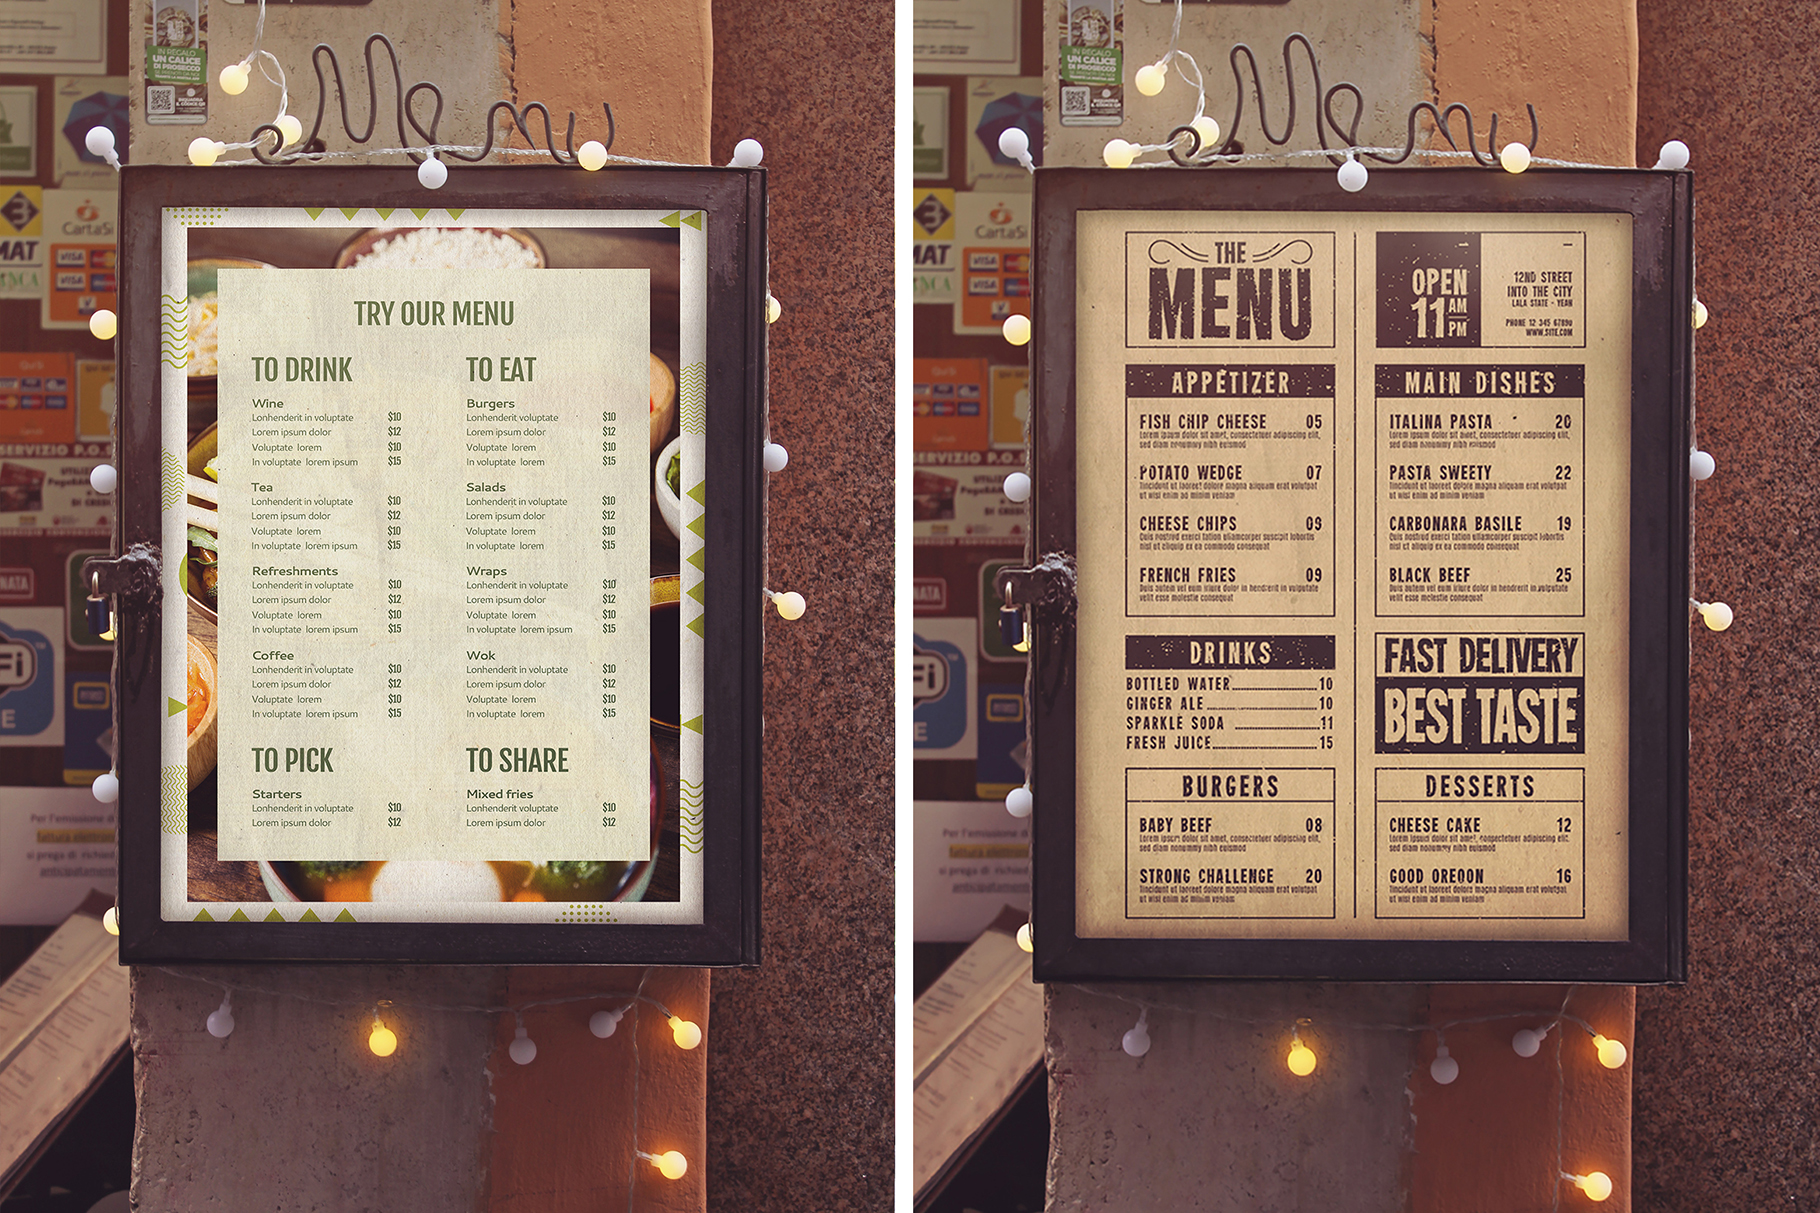 IN REGALO
UN CALICE
DI PROSECCO
Menu
3
CartaSi
MAT
VISA
VISA
SERVIZIO P.O.S
NATA
Fi
E
Per l'emissione di
fattura elettronica
si prega di richied
anticipatamente
TRY OUR MENU
TO DRINK
Wine
Lonhenderit in voluptate $10
Lorem ipsum dolor $12
Voluptate lorem $10
In voluptate lorem ipsum $15
Tea
Lonhenderit in voluptate $10
Lorem ipsum dolor $12
Voluptate lorem $10
In voluptate lorem ipsum $15
Refreshments
Lonhenderit in voluptate $10
Lorem ipsum dolor $12
Voluptate lorem $10
In voluptate lorem ipsum $15
Coffee
Lonhenderit in voluptate $10
Lorem ipsum dolor $12
Voluptate lorem $10
In voluptate lorem ipsum $15
TO PICK
Starters
Lonhenderit in voluptate $10
Lorem ipsum dolor $12
TO EAT
Burgers
Lonhenderit voluptate $10
Lorem ipsum dolor $12
Voluptate lorem $10
In voluptate lorem $15
Salads
Lonhenderit in voluptate $10
Lorem ipsum dolor $12
Voluptate lorem $10
In voluptate lorem $15
Wraps
Lonhenderit in voluptate $10
Lorem ipsum dolor $12
Voluptate lorem $10
In voluptate lorem ipsum $15
Wok
Lonhenderit in voluptate $10
Lorem ipsum dolor $12
Voluptate lorem $10
In voluptate lorem $15
TO SHARE
Mixed fries
Lonhenderit voluptate $10
Lorem ipsum dolor $12
IN REGALO
UN CALICE
DI PROSECCO
Menu
3
CartaSi
MAT
VISA
VISA
SERVIZIO P.O.S
NATA
Fi
E
Per l'emissione di
fattura elettronica
si prega di richied
anticipatamente
THE
MENU
OPEN
11 AM
PM
12ND STREET
INTO THE CITY
LALA STATE - YEAH
PHONE 12 345 67890
WWW.SITE.COM
APPETIZER
FISH CHIP CHEESE 05
Lorem ipsum dolor sit amet, consectetuer adipiscing elit,
sed diam nonummy nibh euismod
POTATO WEDGE 07
Tincidunt ut laoreet dolore magna aliquam erat volutpat
ut wisi enim ad minim veniam
CHEESE CHIPS 09
Quis nostrud exerci tation ullamcorper suscipit lobortis
nisl ut aliquip ex ea commodo consequat
FRENCH FRIES 09
Duis autem vel eum iriure dolor in hendrerit in vulputate
velit esse molestie consequat
DRINKS
BOTTLED WATER 10
GINGER ALE 10
SPARKLE SODA 11
FRESH JUICE 15
BURGERS
BABY BEEF 08
Lorem ipsum dolor sit amet, consectetuer adipiscing elit,
sed diam nonummy nibh euismod
STRONG CHALLENGE 20
Tincidunt ut laoreet dolore magna aliquam erat volutpat
ut wisi enim ad minim veniam
MAIN DISHES
ITALINA PASTA 20
Lorem ipsum dolor sit amet, consectetuer adipiscing elit,
sed diam nonummy nibh euismod
PASTA SWEETY 22
Tincidunt ut laoreet dolore magna aliquam erat volutpat
ut wisi enim ad minim veniam
CARBONARA BASILE 19
Quis nostrud exerci tation ullamcorper suscipit lobortis
nisl ut aliquip ex ea commodo consequat
BLACK BEEF 25
Duis autem vel eum iriure dolor in hendrerit in vulputate
velit esse molestie consequat
FAST DELIVERY
BEST TASTE
DESSERTS
CHEESE CAKE 12
Lorem ipsum dolor sit amet, consectetuer adipiscing elit,
sed diam nonummy nibh euismod
GOOD OREOON 16
Tincidunt ut laoreet dolore magna aliquam erat volutpat
ut wisi enim ad minim veniam